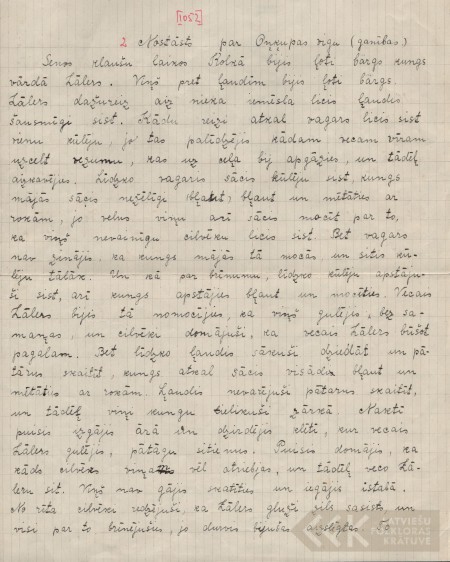 [1052]
2 Nostāsts par Oņķupas rīgu (ganībās)
Senos klaušu laikos Rolkā bijis ļoti bārgs kungs
vārdā Lālers. Viņš pret ļaudīm bijis ļoti bārgs.
Lālers dažureiz aiz nieka iemesla licis ļaudis
šausmīgi sist. Kādu reizi atkal vagars licis sist
vienu kūlēju, jo tas palīdzējis kādam vecam vīram
uzcelt vezumu, kas uz ceļa bij apgāzies, un tādēļ
aizkavējies. Līdzko vagaris sācis kūlēju sist, kungs
mājās sācis nežēlīgi bļaut un mētāties ar
rokām, jo velns viņu arī sācis mocīt par to,
ka viņš nevainīgu cilvēku licis sist. Bet vagars
nav zinājis, ka kungs mājās tā mocās un sitis kū-
lēju tālāk. Un kā par brīnumu, līdzko kūlēju apstāju-
ši sist, arī kungs apstājies bļaut un mocīties. Vecais
Lālers bijis tā nomocījies, ka viņš gulējis bez sa-
maņas, un cilvēki domājuši, ka vecais Lālers būšot
pagalam. Bet līdzko ļaudis sākuši dziedāt un pā-
tarus skaitīt, kungs atkal sācis visādi bļaut un
mētāties ar rokām. Ļaudis nevarējuši pātarus skaitīt,
un tādēļ viņi kungu ielikuši zārkā. Naktī
puisis izgājis ārā un dzirdējis klētī, kur vecais
Lālers gulējis, pātagu sitienus. Puisis domājis, ka
kāds cilvēks vēl atriebjas, un tādēļ veco Lā-
leru sit. Viņš nav gājis skatīties un iegājis istabā.
No rīta cilvēki redzējuši, ka Lālers gluži zils sasists un
visi par to brīnējušies, jo durvis bijušas aizslēgtas. To
LATVIEŠU
FOLKLORAS
KRĀTUVE